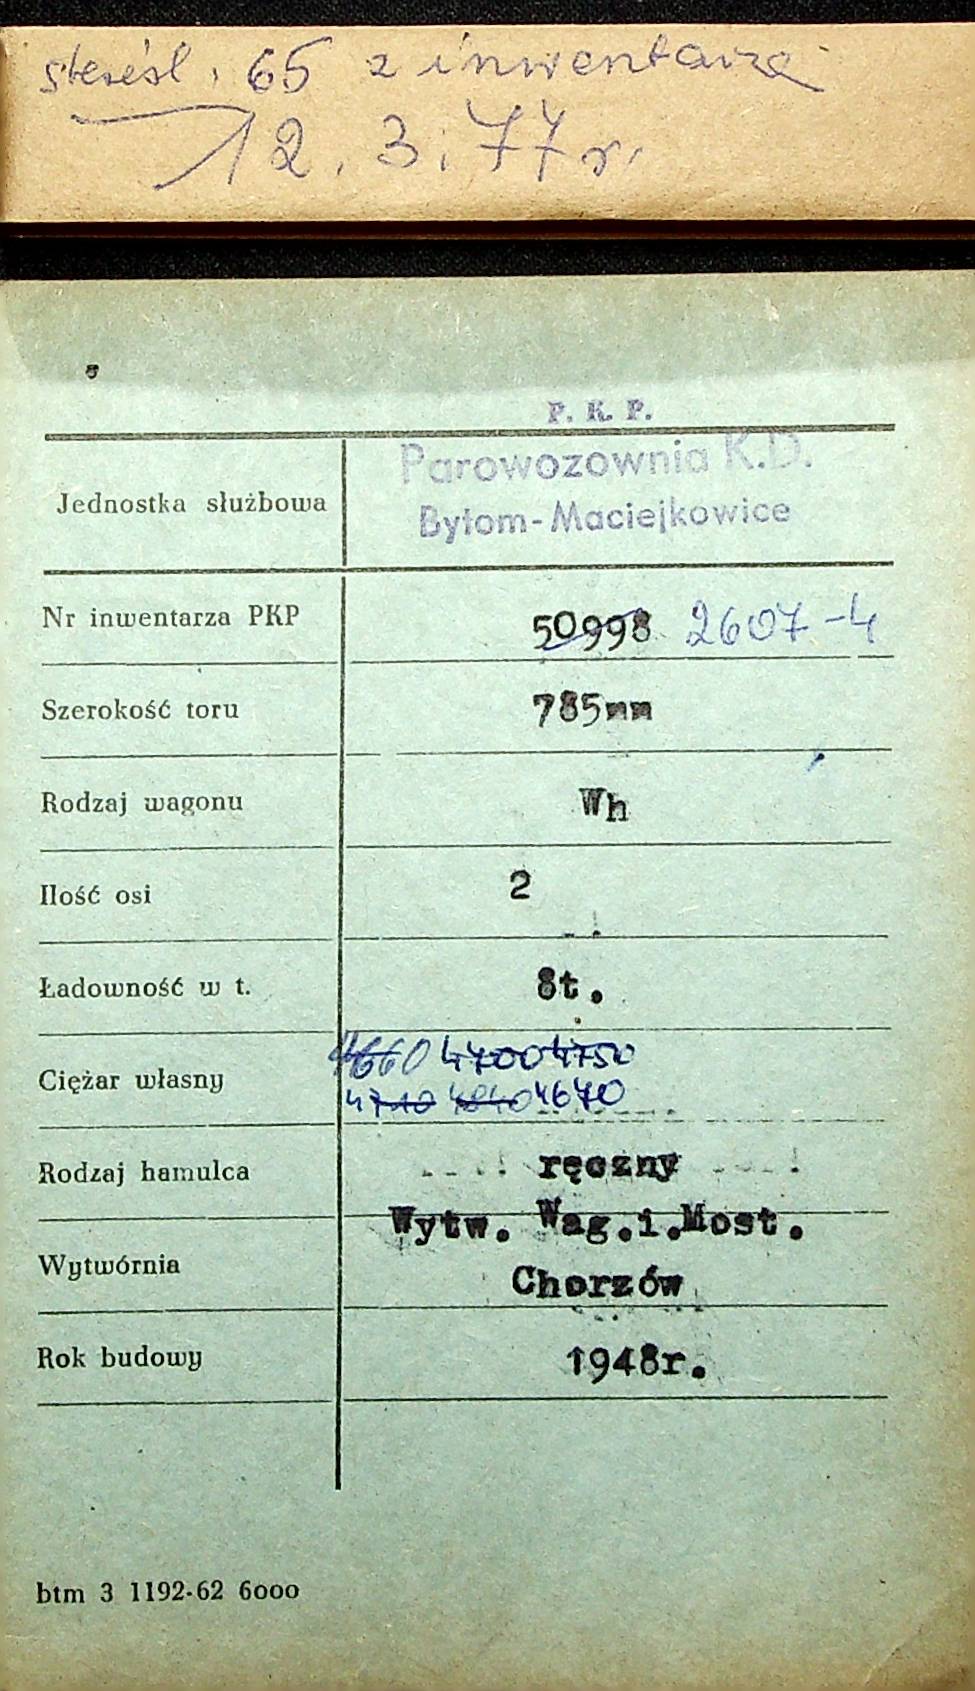 skreśl. 65 z inwentarza
12.3.77r.
P. K. P.
Parowozownia K.D.
Bytom-Maciejkowice
Jednostka służbowa
Nr inwentarza PKP 50998 2607-4
Szerokość toru 785mm
Rodzaj wagonu Wh
Ilość osi 2
Ładowność w t. 8t.
4660 4700 4750
Ciężar własny
4710 4840 4670
Rodzaj hamulca ręczny
Wytw. Wag.i.Most.
Wytwórnia
Chorzów
Rok budowy 1948r.
btm 3 1192-62 6000